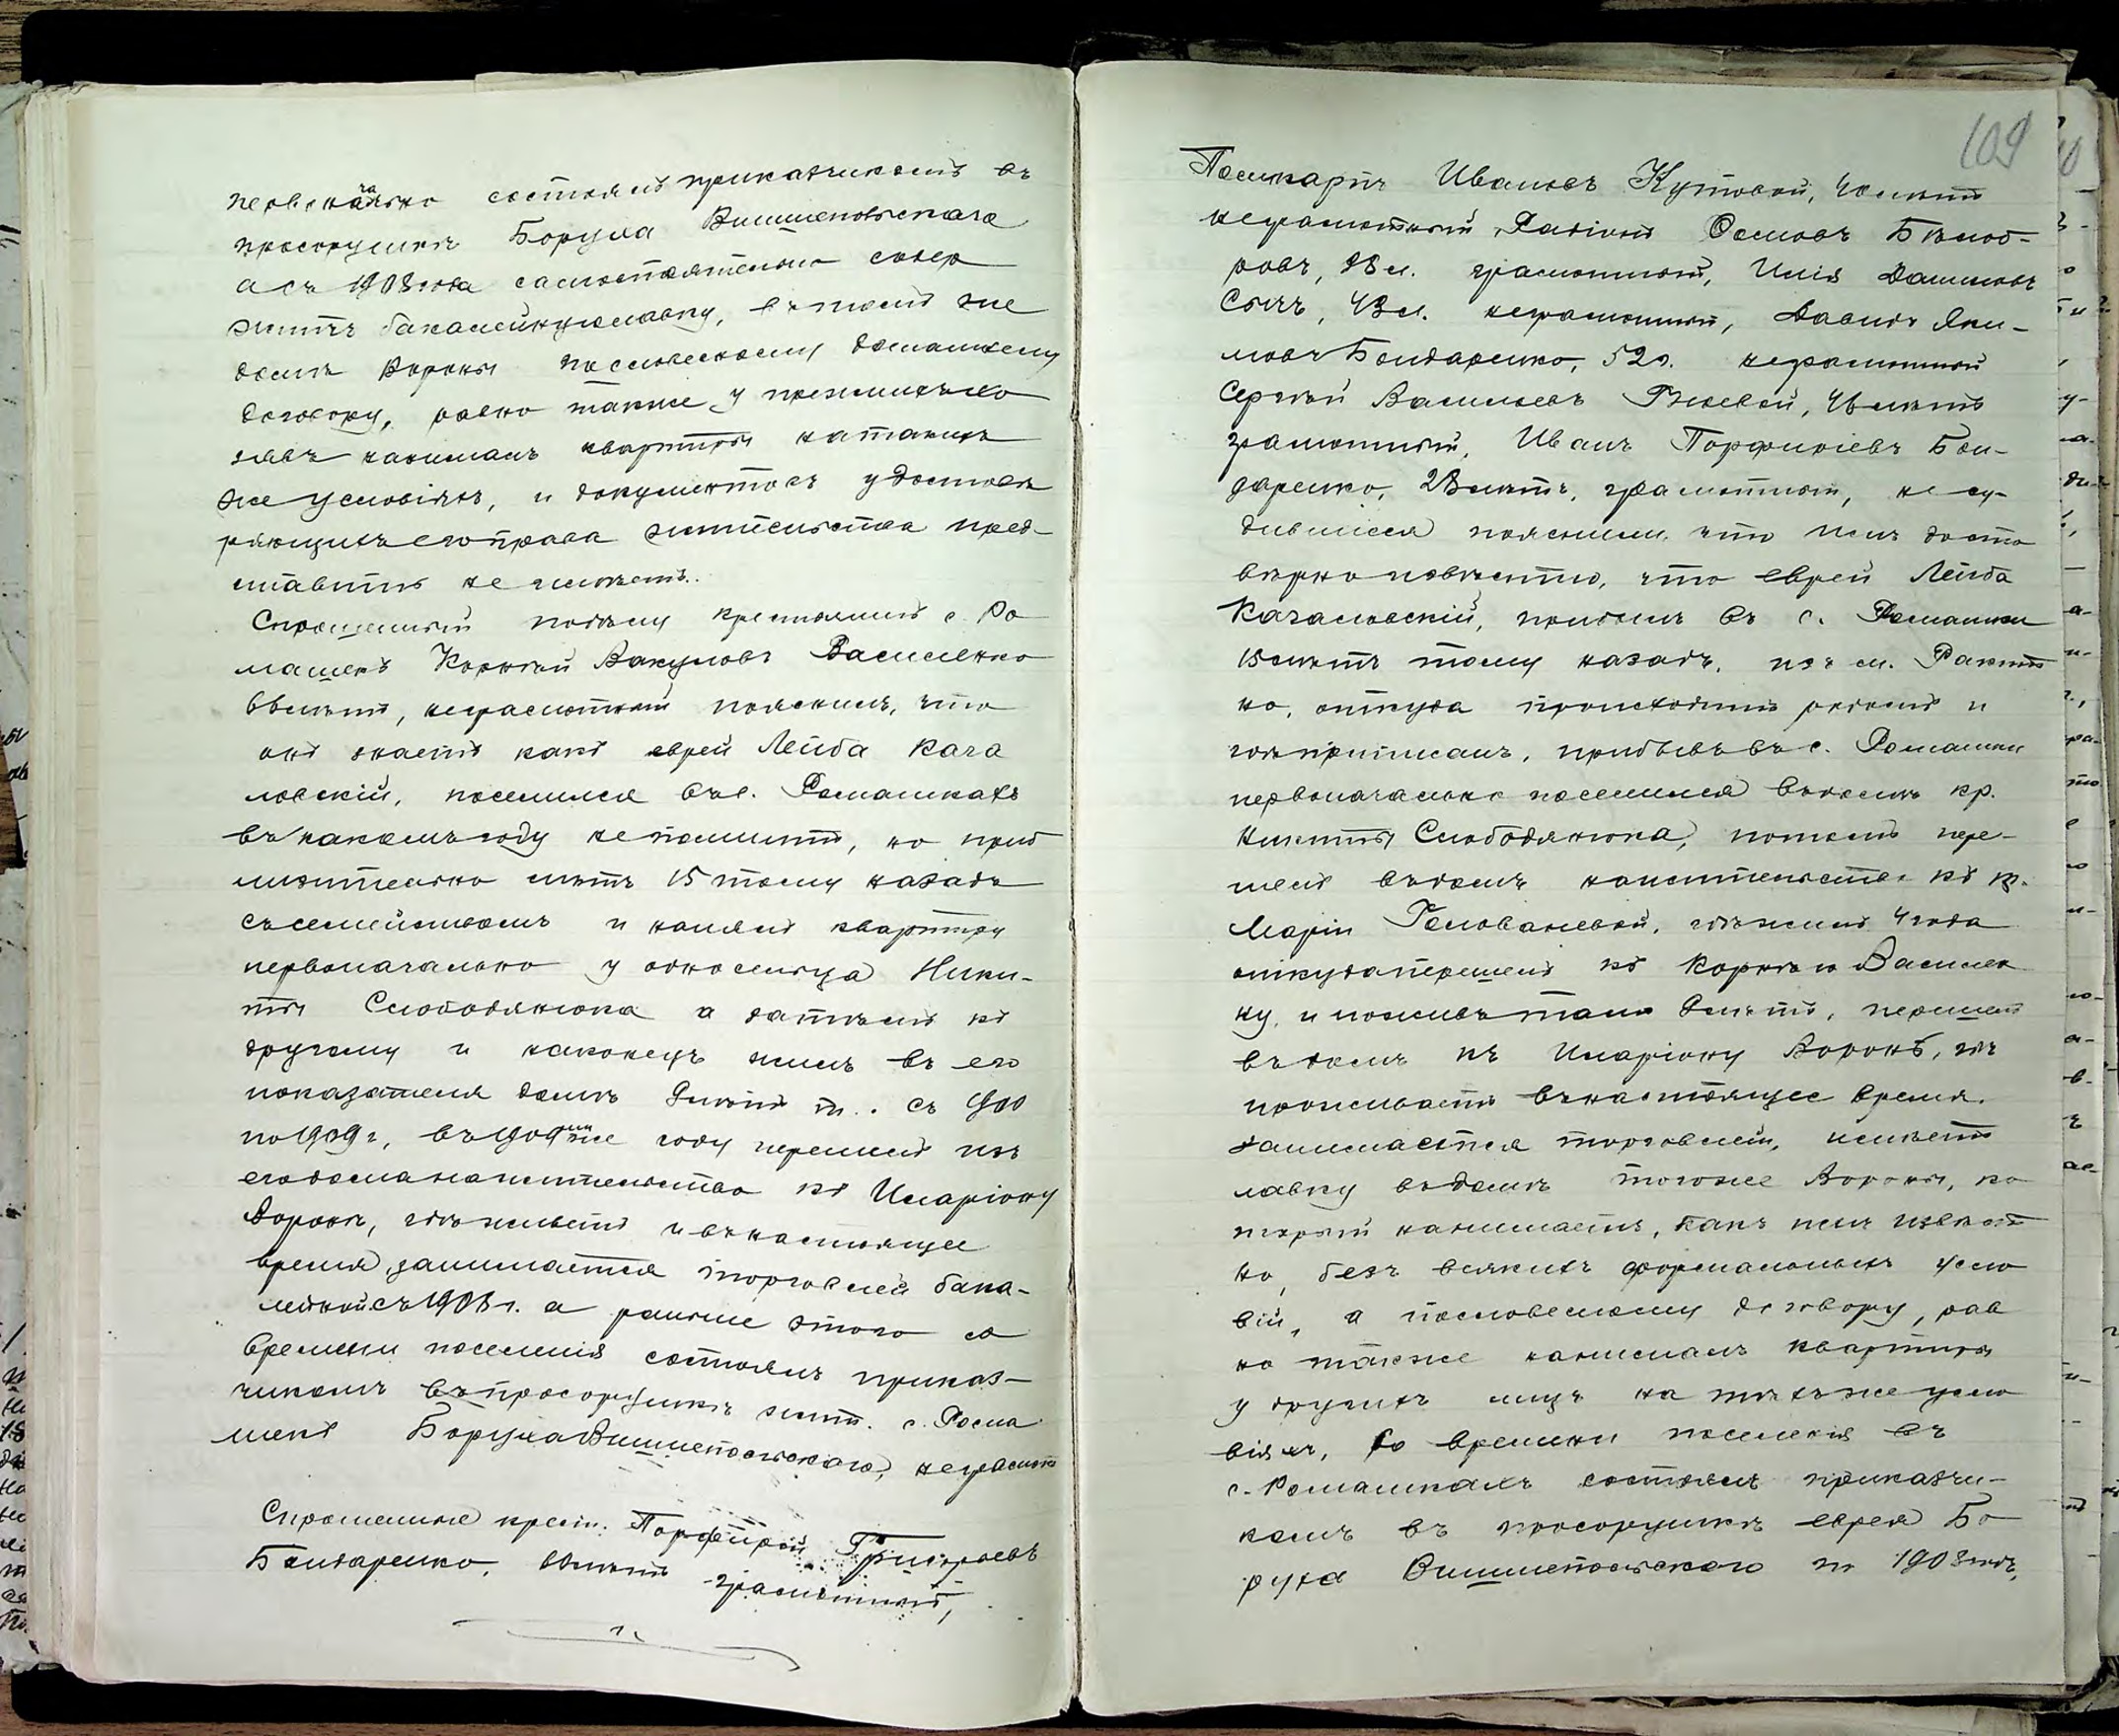 первоначально состоялъ приказчикомъ въ
просорушкѣ Боруха Вишнепольскаго
а съ 1908 года самостоятельно содер
житъ бакалейную лавку, въ томъ же
домѣ Вороны по словесному домашнему
договору, равно также у прежнихъ хо
зяевъ нанималъ квартиры на такихъ
же условіяхъ, и документовъ удостовѣ
ряющихъ его право жительства пред-
ставить не можетъ.
Спрошенный по дѣлу крестьянинъ с. Ро
машекъ Корнѣй Вакуловъ Василенко
лѣтъ, неграмотный пояснилъ, что
онъ знаетъ какъ еврей Лейба Кага
ловскій, поселился въ с. Ромашкахъ
въ какомъ году не помнитъ, но приб
лизительно лѣтъ 15 тому назадъ
съ семействомъ и нанялъ квартиру
первоначально у односельца Ники-
ты Слободянюка а затѣмъ къ
другому и наконецъ жилъ въ его
показателя домѣ 9 лѣтъ т. е. съ 1900
по 1909 г., въ 1909 же году перешелъ изъ
его дома на жительство къ Иларіону
Воронѣ, гдѣ живетъ и въ настоящее
время, занимается торговлей бака-
лейной съ 1908 г. а раньше этого со
времени поселенія состоялъ приказ-
чикомъ въ просорушкѣ жит. с. Рома
шекъ Боруха Вишнепольскаго, неграмотн
Спрошенные крест. Порфирій Григорьевъ
Бондаренко, лѣтъ грамотный,
109
Поликарпъ Ивановъ Кутовой, лѣтъ
неграмотный, Родіонъ Осиповъ Бѣлоб-
ровъ, л. грамотный, Илія Даниловъ
Сычъ, 43 л. неграмотный, Давидъ Яки-
мовъ Бондаренко, 52 л. неграмотный
Сергѣй Васильевъ лѣтъ
грамотный, Иванъ Порфиріевъ Бон-
даренко, 28 лѣтъ, грамотный, не су-
дившіеся пояснили, что имъ досто
вѣрно извѣстно, что еврей Лейба
Кагаловскій, прибылъ въ с. Ромашки
15 лѣтъ тому назадъ, изъ м. Ракит
но, откуда происходитъ родомъ и
гдѣ приписанъ, прибывъ въ с. Ромашки
первоначально поселился въ домѣ кр.
Никиты Слободянюка, потомъ пере-
шелъ въ домъ на жительство къ кр.
Маріи Головачевой, гдѣ жилъ 4 года
откуда перешелъ къ Корнѣю Василен
ку, и поживъ тамъ 9 лѣтъ, перешелъ
въ домъ къ Иларіону Воронѣ, гдѣ
проживаетъ въ настоящее время.
занимается торговлей, имѣетъ
лавку въ домѣ того же Вороны, ко
торый нанимаетъ, какъ имъ извѣст
но, безъ всякихъ формальныхъ усло
вій, а по словесному договору, рав
но также нанималъ квартиры
у другихъ лицъ на тѣхъ же усло
віяхъ, со времени поселенія въ
с. Ромашкахъ состоялъ приказчи-
комъ въ просорушкѣ еврея Бо
руха Вишнепольскаго по 1908 годъ,